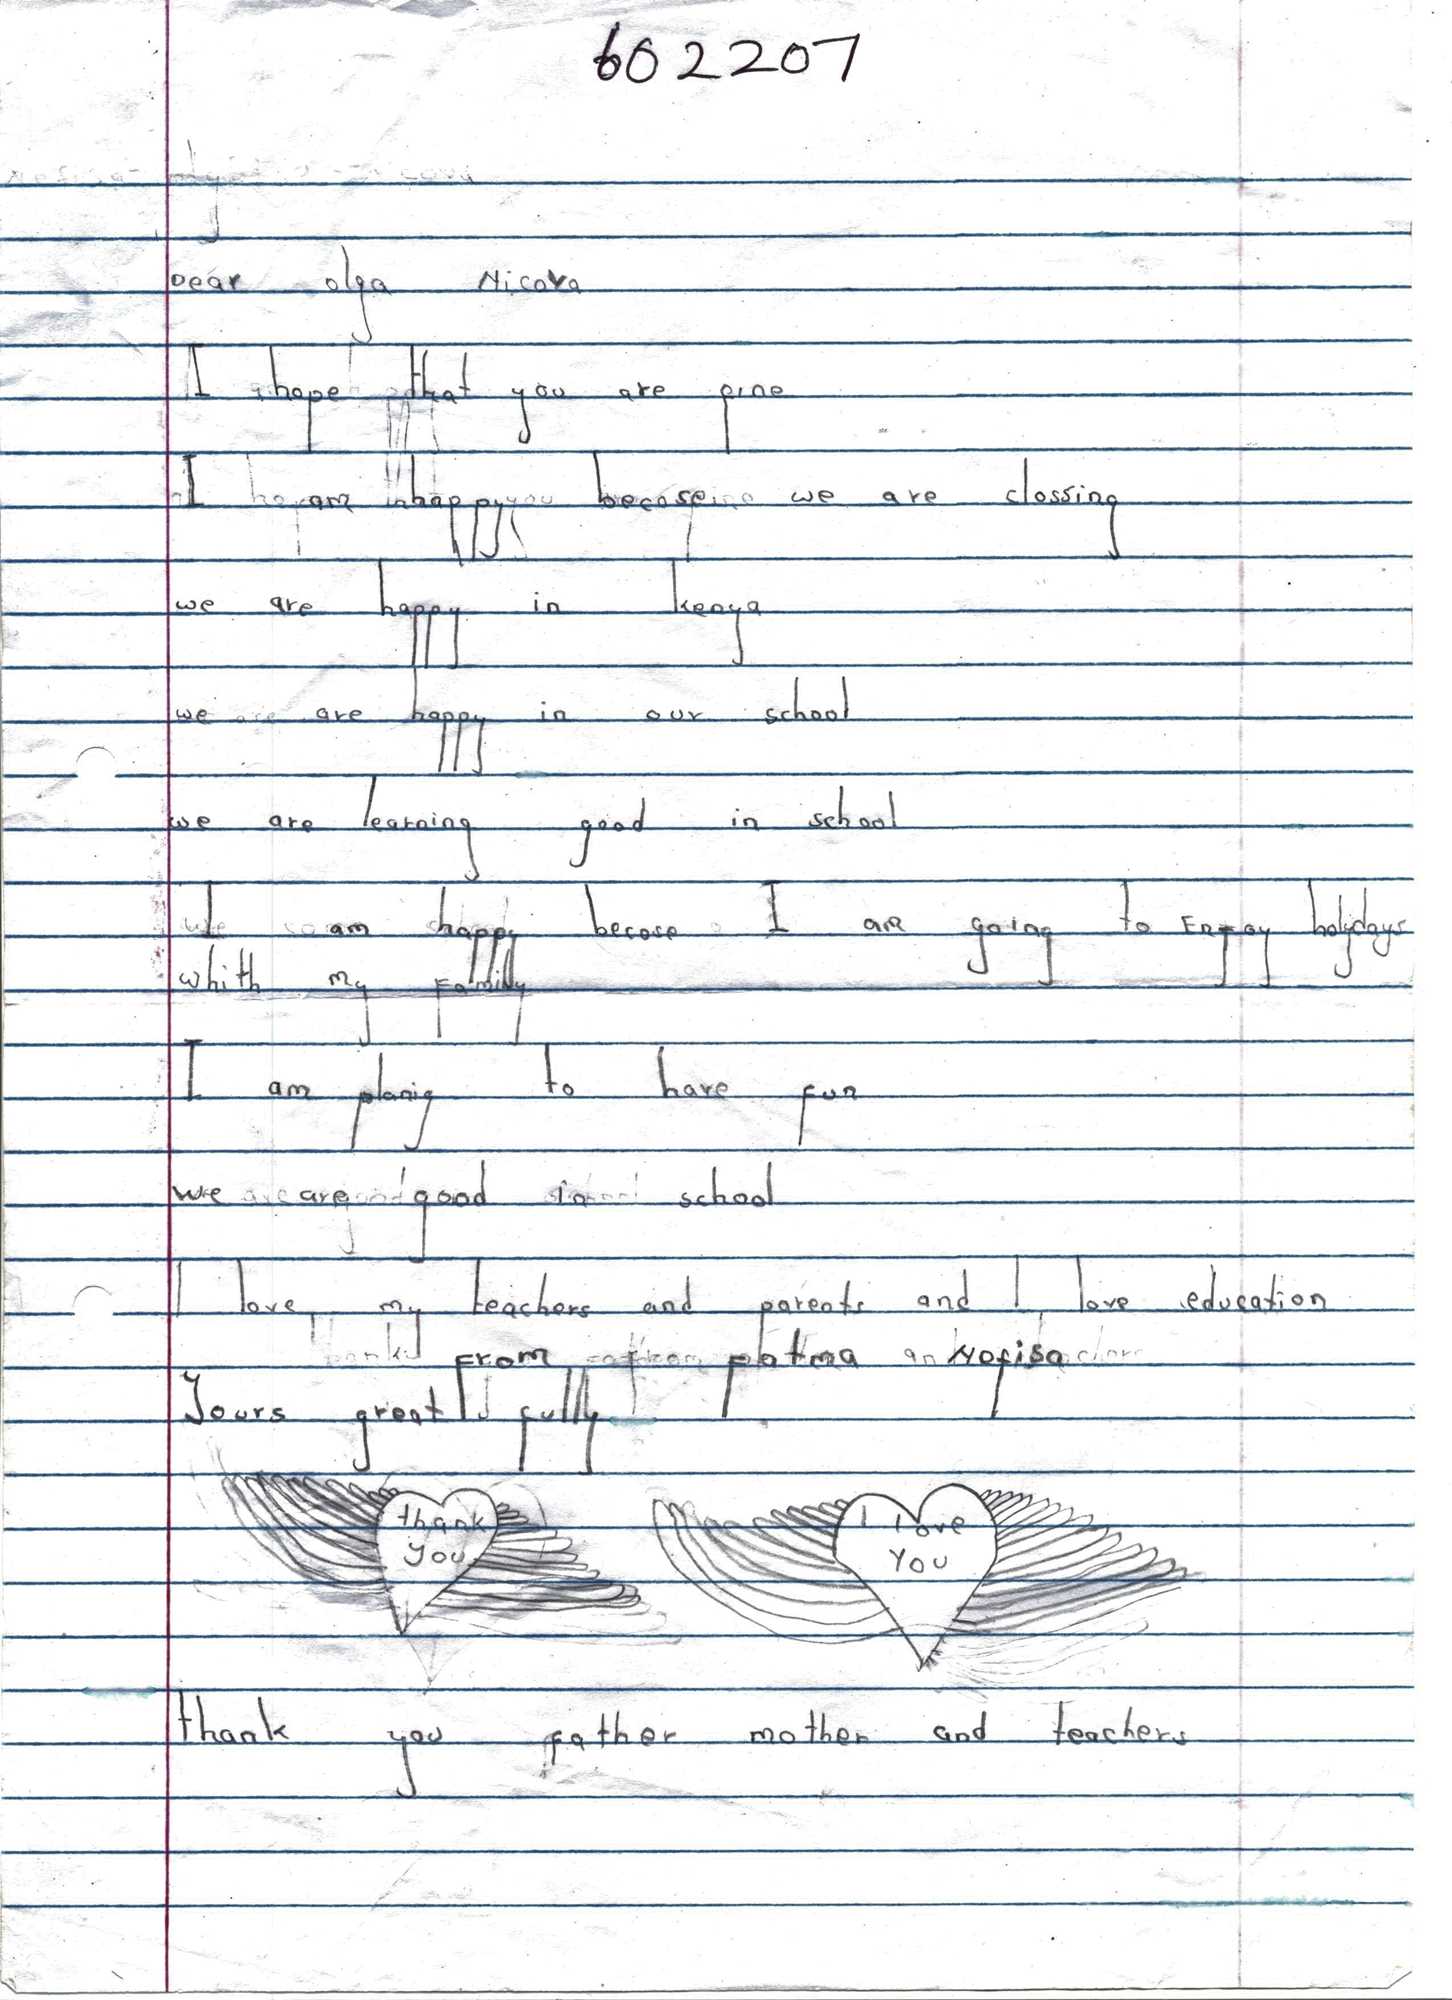 602207
Dear olga Nicova
I hope that you are fine
I am happy becose we are clossing
we are happy in kenya
we are happy in our school
we are learning good in school
I am happy becose I am going to Enjoy holydays
whith my Family
I am planig to have fun
we are good in school
I love my teachers and parents and I love education
From fatma Nofisa
Yours great fully
thank
you
I love
You
thank you father mother and teachers